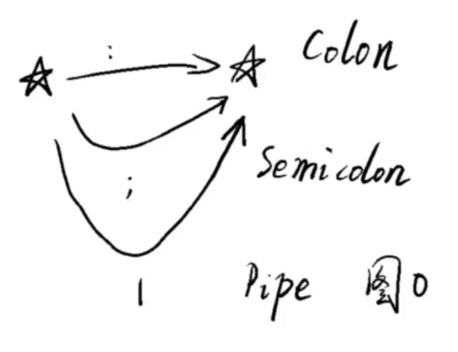 : Colon
; Semicolon
| Pipe 图0